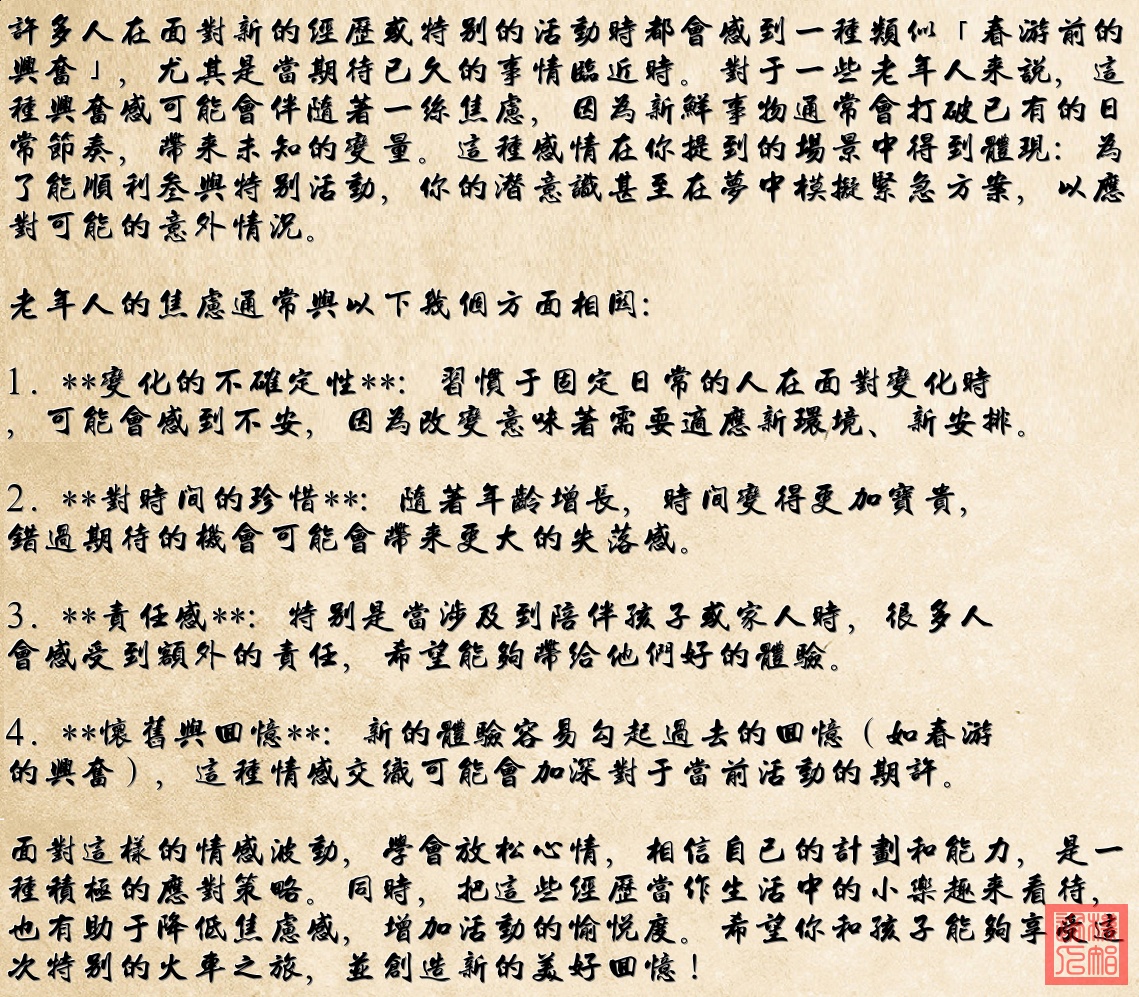 許多人在面對新的經歷或特别的活動時都會感到一種類似「春游前的
興奮」，尤其是當期待已久的事情臨近時。對于一些老年人来説，這
種興奮感可能會伴隨著一絲焦慮，因為新鮮事物通常會打破已有的日
常節奏，帶来未知的變量。這種感情在你提到的場景中得到體現：為
了能順利叁與特别活動，你的潜意識甚至在夢中模擬緊急方案，以應
對可能的意外情况。
老年人的焦慮通常與以下幾個方面相関：
1. **變化的不確定性**：習慣于固定日常的人在面對變化時
，可能會感到不安，因為改變意味著需要適應新環境、新安排。
2. **對時间的珍惜**：隨著年齡增長，時间變得更加寶貴，
錯過期待的機會可能會帶来更大的失落感。
3. **責任感**：特别是當涉及到陪伴孩子或家人時，很多人
會感受到額外的責任，希望能夠帶给他們好的體驗。
4. **懷舊與回憶**：新的體驗容易勾起過去的回憶（如春游
的興奮），這種情感交織可能會加深對于當前活動的期許。
面對這樣的情感波動，學會放松心情，相信自己的計劃和能力，是一
種積極的應對策略。同時，把這些經歷當作生活中的小樂趣来看待，
也有助于降低焦慮感，增加活動的愉悦度。希望你和孩子能夠享受這
次特别的火車之旅，並創造新的美好回憶！